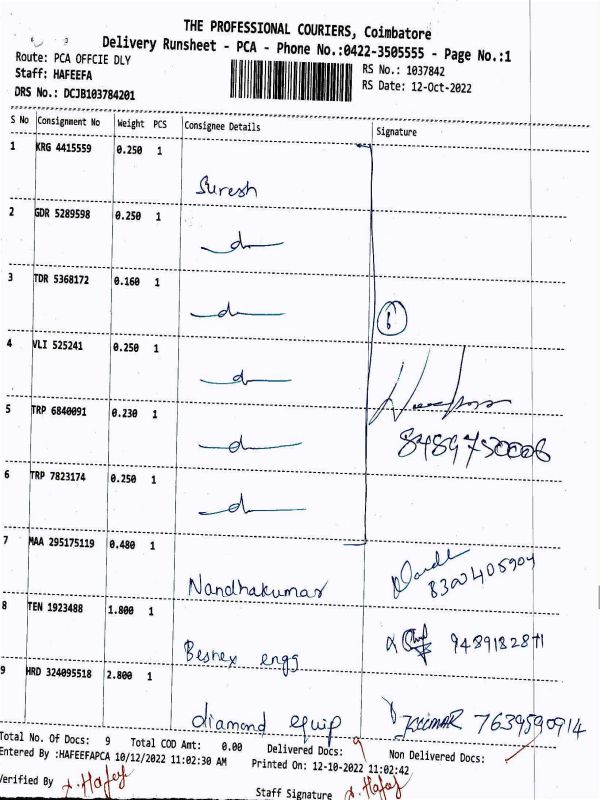 THE PROFESSIONAL COURIERS, Coimbatore
Delivery Runsheet - PCA - Phone No.:0422-3505555 - Page No.:1
Route: PCA OFFCIE DLY
RS No.: 1037842
Staff: HAFEEFA
RS Date: 12-Oct-2022
DRS No.: DCJB103784201
S No Consignment No Weight PCS Consignee Details Signature
1 KRG 4415559 0.250 1
Suresh
2 GDR 5289598 0.250 1
3 TDR 5368172 0.160 1
6
4 VLI 525241 0.250 1
5 TRP 6840091 0.230 1
8489750006
6 TRP 7823174 0.250 1
7 MAA 295175119 0.480 1
Nandhakumar 8300405904
8 TEN 1923488 1.800 1
Beshex engg 9489182871
9 HRD 324095518 2.800 1
diamond equip 7639590914
Total No. Of Docs: 9 Total COD Amt: 0.00 Delivered Docs: 9 Non Delivered Docs:
Entered By :HAFEEFAPCA 10/12/2022 11:02:30 AM Printed On: 12-10-2022 11:02:42
Verified By
Staff Signature